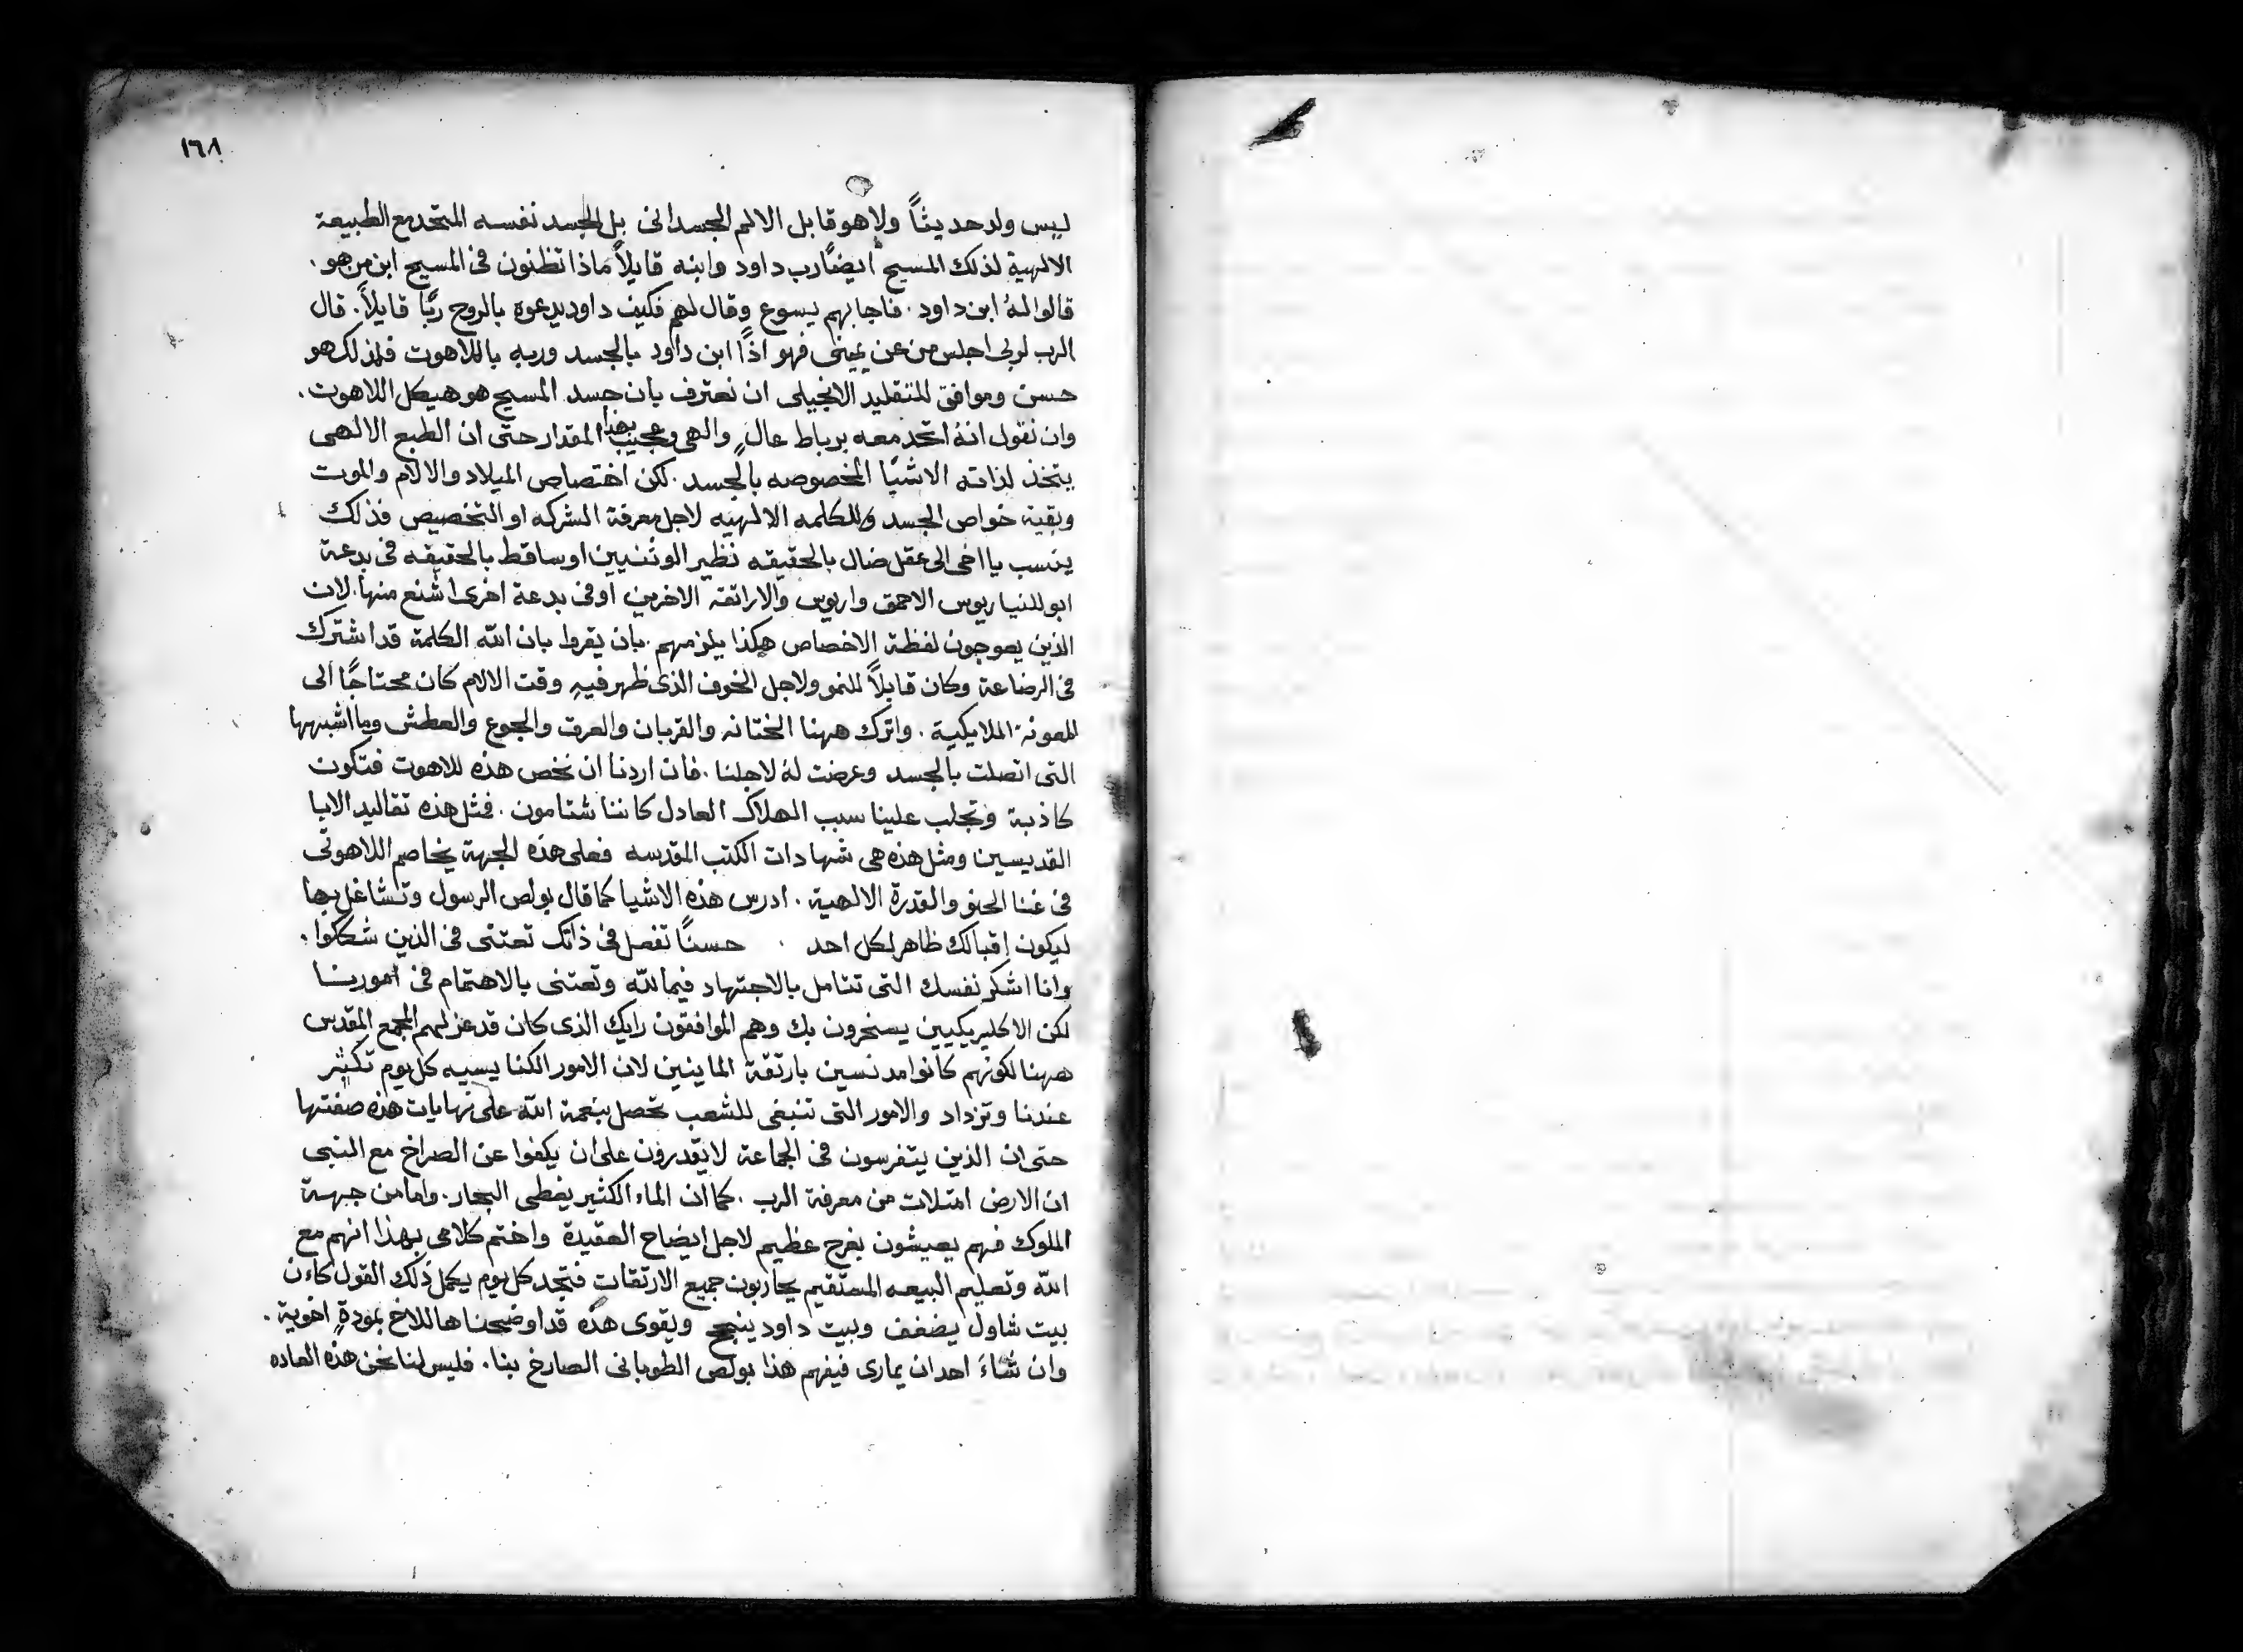 ١٦٨
ليس ولد حديثاً ولا هو قابل الالم الجسداني بل الجسد نفسه المتحد مع الطبيعة
الالهية لذلك المسيح ايضًا رب داود وابنه قايلاً ماذا تظنون في المسيح ابن من هو .
قالوا لهُ ابن داود . فاجابهم يسوع وقال لهم فكيف داود يدعوه بالروح ربًّا قايلاً . قال
الرب لربي اجلس من عن يميني فهو اذًا ابن داود بالجسد وربه باللاهوت فلذلك هو
حسن وموافق للتقليد الانجيلي ان نعترف بان جسد المسيح هو هيكل اللاهوت .
وان نقول انهُ اتحد معه برباط عالٍ والهي وعجيب بهذا المقدار حتى ان الطبع الالهي
يتخذ لذاته الاشيًا المخصوصه بالجسد . لكن اختصاص الميلاد والالام والموت
وبقية خواص الجسد وللكلمه الالهيه لاجل معرفة الشركه او التخصيص فذلك
ينسب يا اخي الى عقل ضال بالحقيقه نظير الوثنيين او ساقط بالحقيقه في بدعة
ابوللنياريوس الاحمق واريوس والاراتقه الاخرين او في بدعة اخرى اشنع منها . لان
الذين يعوجون لفظة الاخصاص هكذا يلزمهم . بان يقروا بان الله الكلمة قد اشترك
في الرضاعة وكان قابلاً للنمو ولاجل الخوف الذي ظهر فيهِ وقت الالام كان محتاجًا الى
المعونة الملايكية . واترك ههنا الختانه والقربان والعرق والجوع والعطش وما اشبهها
التي اتصلت بالجسد وعرضت لهُ لاجلنا . فان اردنا ان نخص هذه للاهوت فتكون
كاذبة وتجلب علينا سبب الهلاك العادل كاننا شتامون . فمثل هذه تقاليد الابا
القديسين ومثل هذه هي شهادات الكتب المقدسه فعلى هذه الجهة يخاصم اللاهوتى
في غنا الحنو والقدرة الالهية . ادرس هذه الاشيا كما قال بولص الرسول وتشاغل بها
ليكون اقبالك ظاهر لكل احد . حسنًا تفعل في ذاتك تعتنى في الذين شككوا .
وانا اشكر نفسك التي تتامل بالاجتهاد فيما لله وتعتنى بالاهتمام في امورنا
لكن الاكليريكيين يسخرون بك وهم الموافقون رايك الذي كان قد عزلهم المجمع المقدس
ههنا لكونهم كانوا مدنسين بارتقة الماينين لان الامور الكنايسيه كل يوم تكثر
عندنا وتزداد والامور التي تنبغي للشعب تحصل بنعمة الله على نهايات هذه صفتها
حتى ان الذين يتفرسون في الجماعة لا يقدرون على ان يكفوا عن الصراخ مع النبي
ان الارض امتلات من معرفة الرب . كما ان الماء الكثير يغطى البحار . واما من جهة
الملوك فهم يعيشون بفرح عظيم لاجل ايضاح العقيدة واختم كلامي بهذا انهم مع
الله وتعليم البيعه المستقيم يحاربون جميع الارتقات فتجد كل يوم يكمل ذلك القول كاءن
بيت شاول يضعف وبيت داود ينجح ويقوى هذه قد اوضحناها للاخ بمودةٍ اخوية .
وان شاءَ احد ان يمارى فيفهم هذا بولص الطوباني الصارخ بنا . فليس لنا نحن هذه العاده